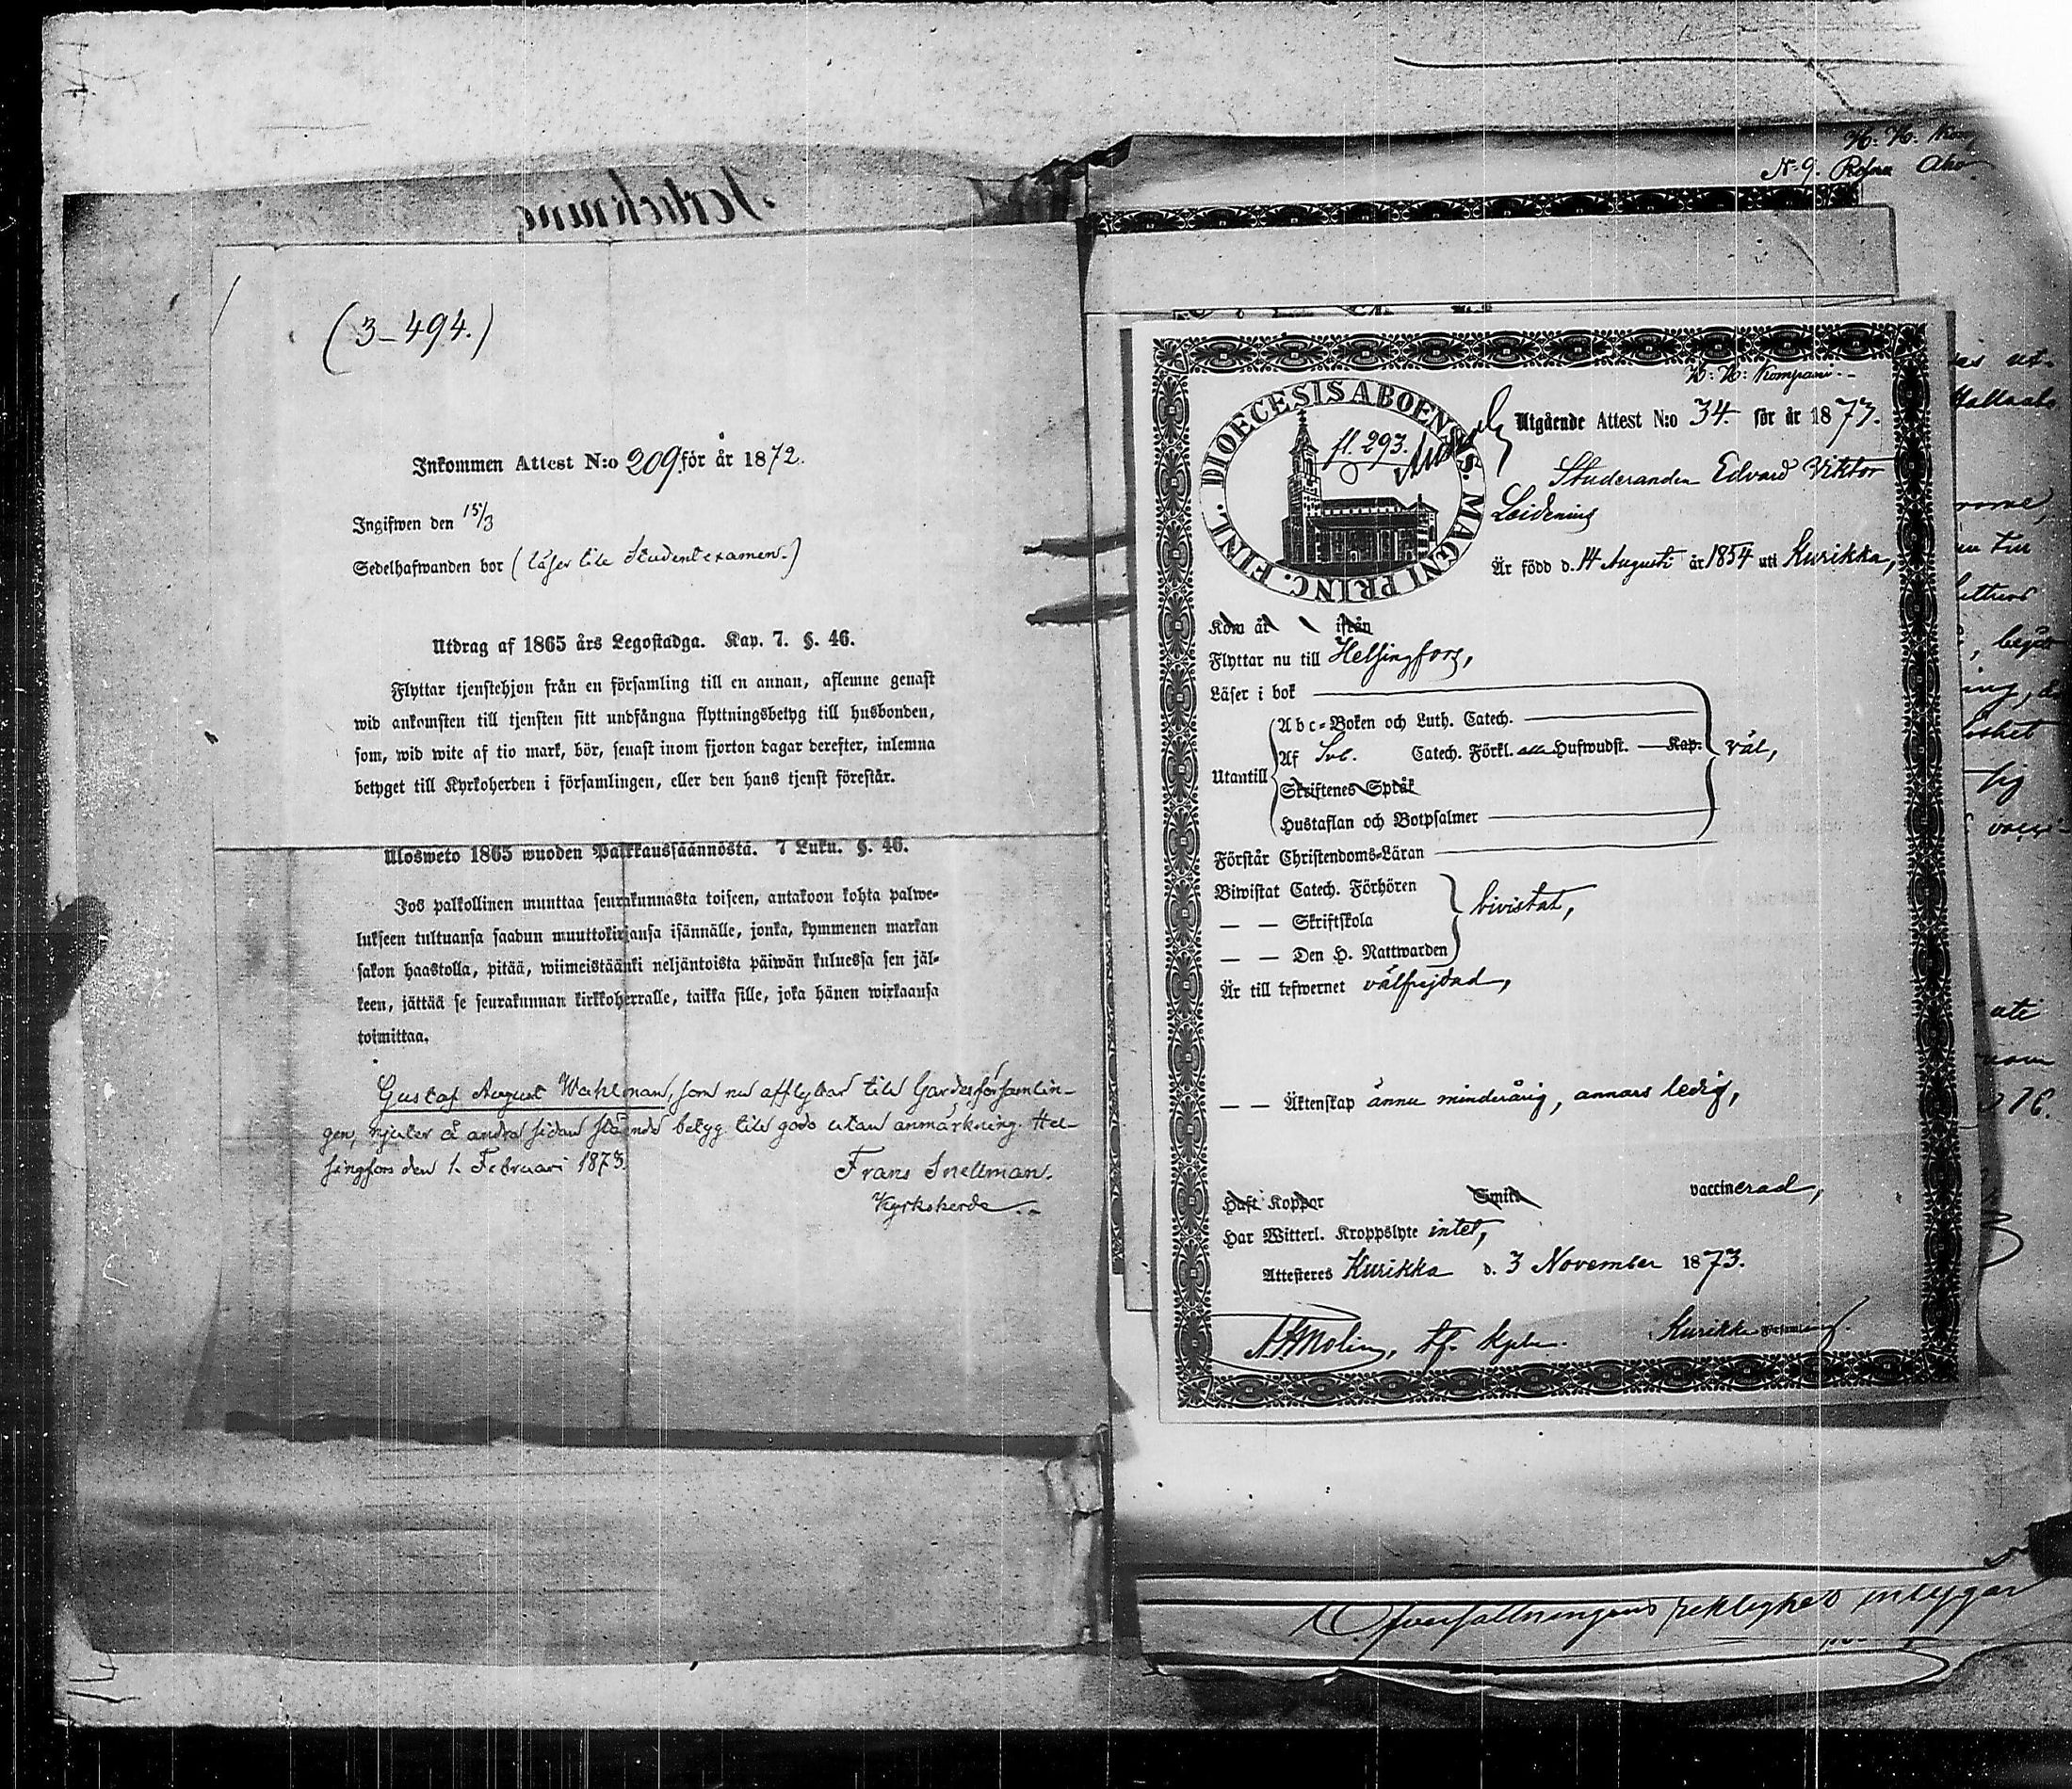 (3-494.)
Inkommen Attest N:o 209 för år 1872.
Ingifwen den 15/3
Sedelhafwanden bor (läser till Studentexamen.)
Utdrag af 1865 års Legostadga. Kap. 7. §. 46.
Flyttar tjenstehjon från en församling till en annan, aflemne genast
wid ankomsten till tjensten sitt undfångna flyttningsbetyg till husbonden,
som, wid wite af tio mark, bör, senast inom fjorton dagar derefter, inlemna
betyget till Kyrkoherden i församlingen, eller den hans tjenst förestår.
Ulosweto 1865 wuoden Palkkaussäännöstä. 7 Luku. §. 46.
Jos palkollinen muuttaa seurakunnasta toiseen, antakoon kohta palwe-
lukseen tultuansa saadun muuttokirjansa isännälle, jonka, kymmenen markan
sakon haastolla, pitää, wiimeistäänki neljäntoista päiwän kuluessa sen jäl-
keen, jättää se seurakunnan kirkkoherralle, taikka sille, joka hänen wirkaansa
toimittaa.
Gustaf August Wahlman, som nu afflyttar till Gardesförsamlin-
gen, njuter å andra sidan stående betyg till godo utan anmärkning. Hel-
singfors den 1. Februari 1873.
Frans Snellman.
Kyrkoherde
N. 9.
K: K: Kompani
DIOECESIS ABOENSIS. MAGNI PRINC. FINL.
fl. 293.
Utgående Attest N:o 34. för år 1873.
Studeranden Edvard Viktor
Leidenius
Är född d. 14 Augusti år 1854 uti Kurikka,
Kom år ifrån
Flyttar nu till Helsingfors,
Läser i bok
Utantill
Abc-Boken och Luth. Catech.
Af Sveb. Catech. Förkl. alla Hufwudst. Kap.
väl,
Skriftenes Språk
Hustaflan och Botpsalmer
Förstår Christendoms-Läran
Biwistat Catech. Förhören
— — Skriftskola
bivistat,
— — Den H. Nattwarden
Är till lefwernet välfrejdad,
— — Äktenskap ännu minderårig, annars ledig,
Haft Koppor Smitt vaccinerad,
Har Witterl. Kroppslyte intet,
Attesteres Kurikka d. 3 November 1873.
tf. Kplan. Kurikka Församling.